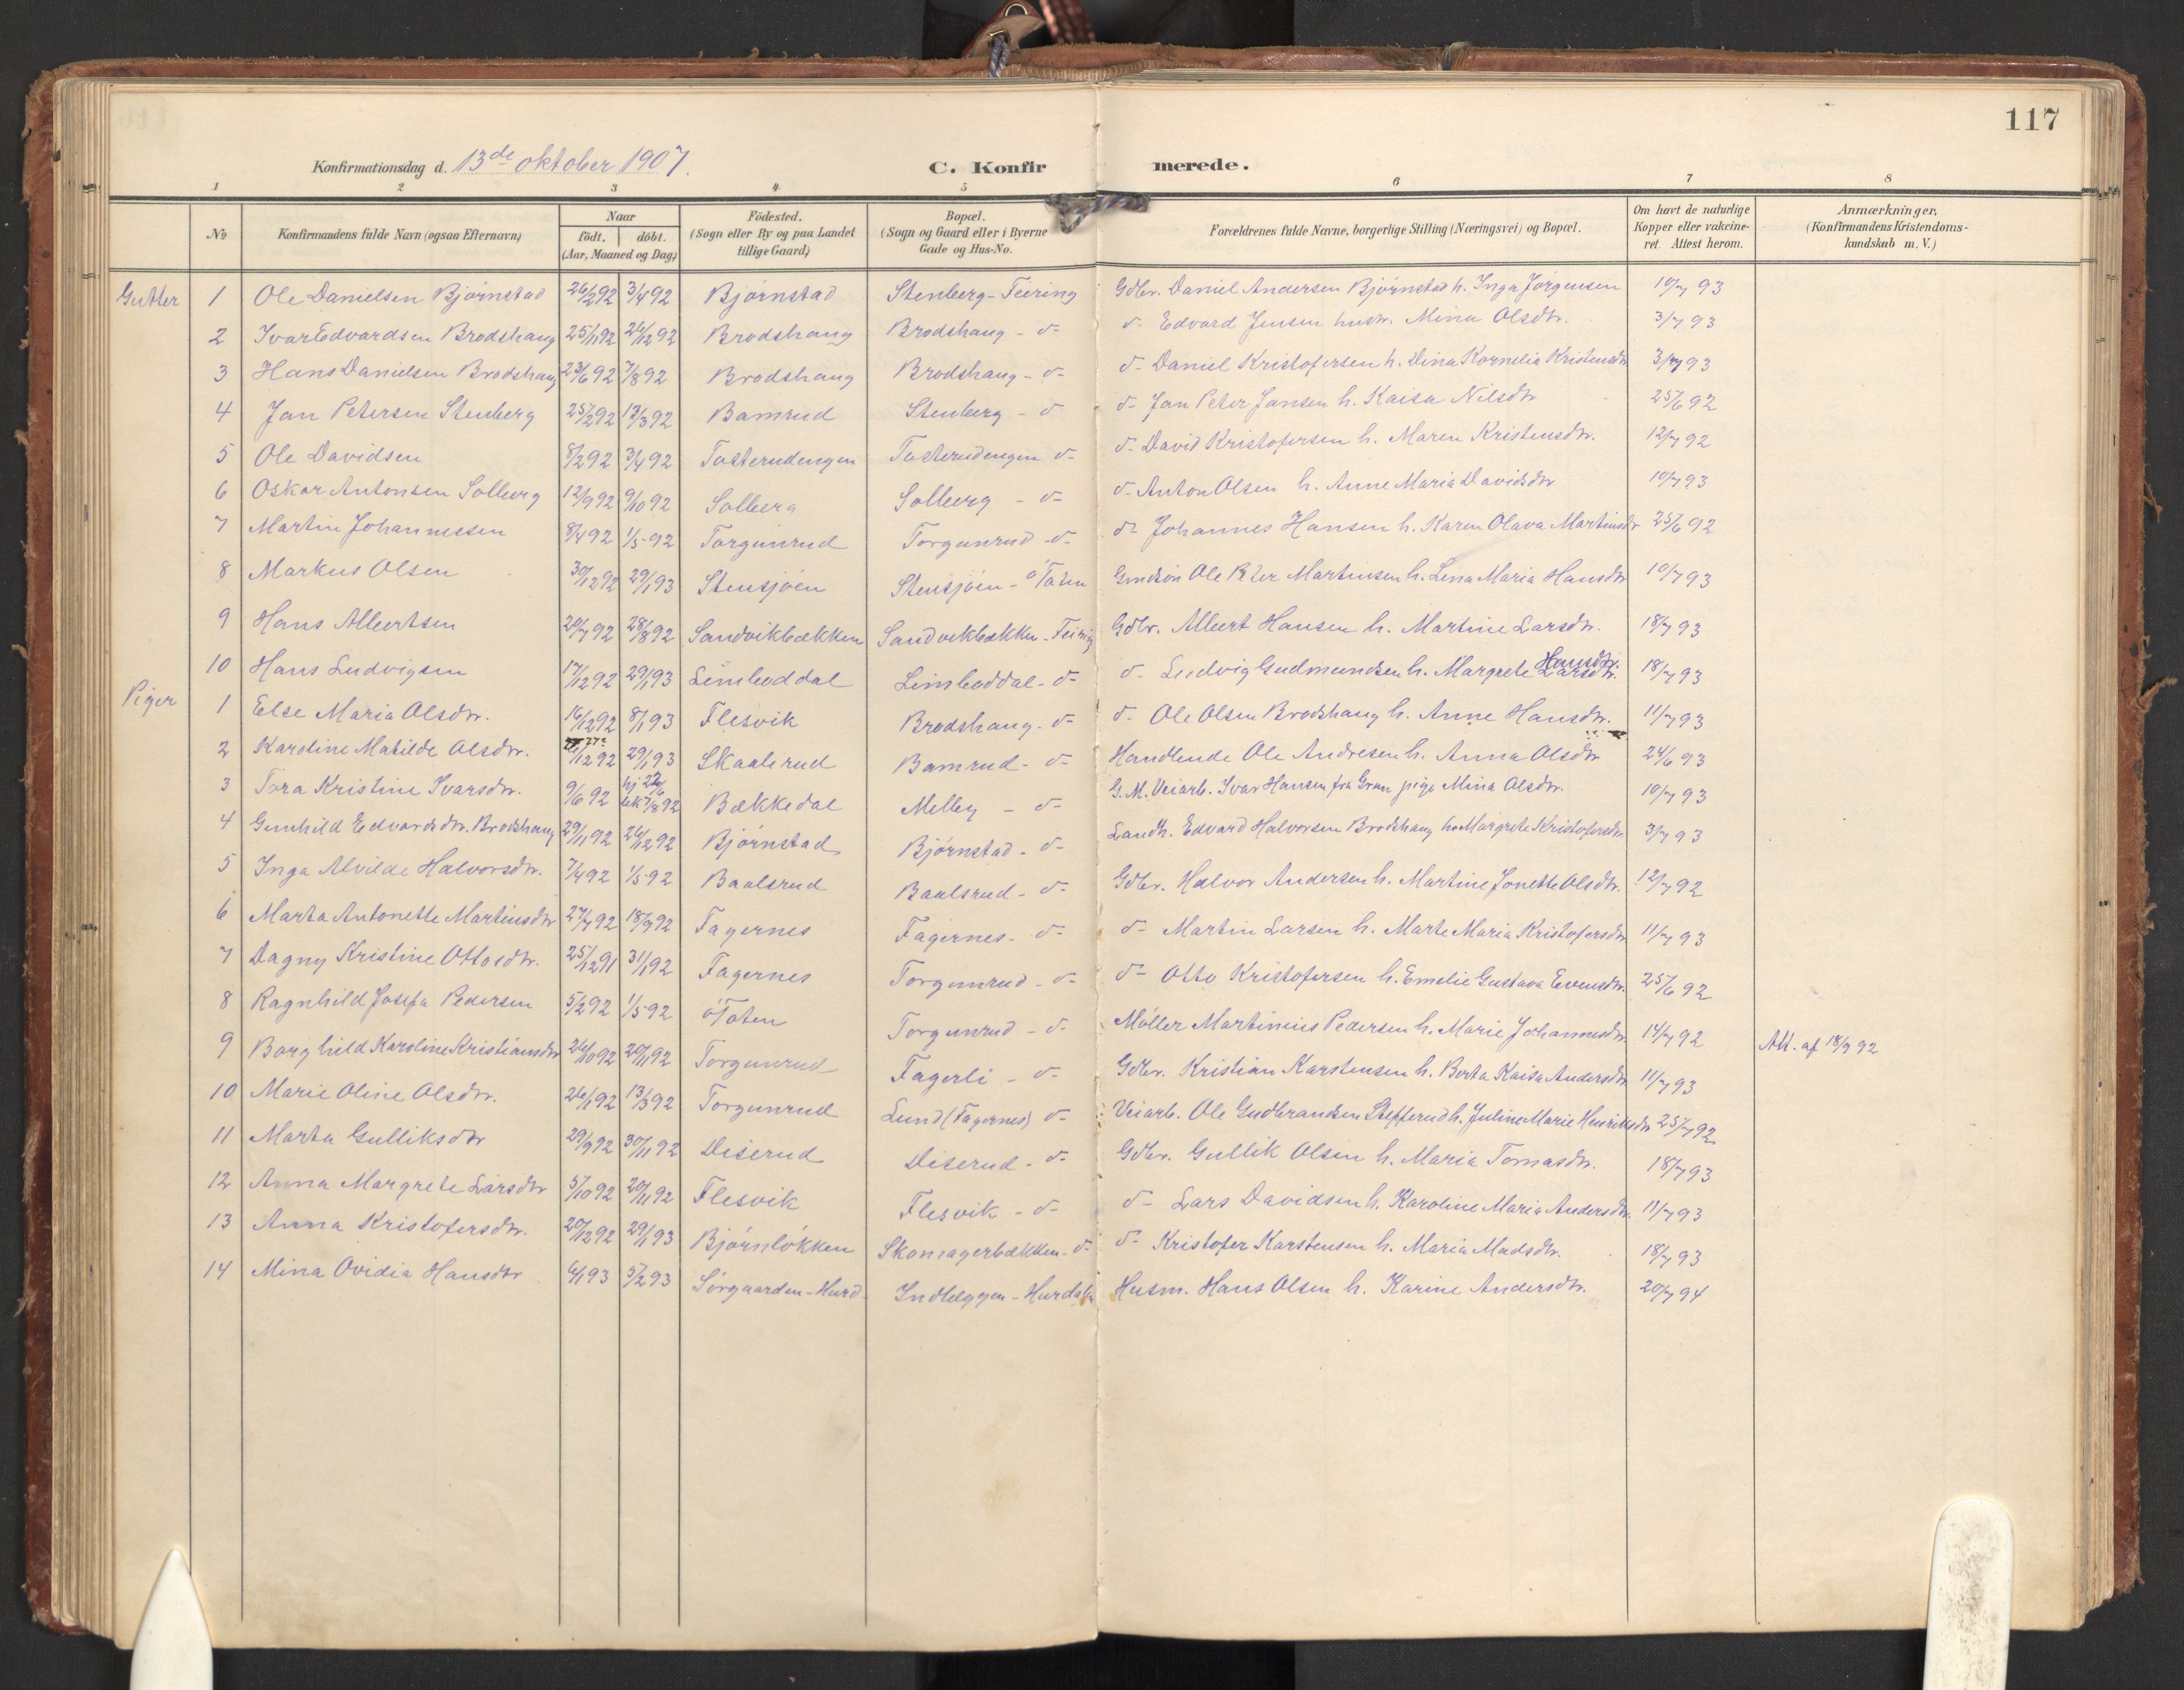 117
Konfirmationsdag d. 13de oktober 1907. C. Konfirmerede.
1 2 3 4 5 6 7 8
No
Konfirmandens fulde Navn (ogsaa Efternavn)
Naar
födt. döbt.
(Aar, Maaned og Dag)
Födested.
(Sogn eller By og paa Landet
tillige Gaard)
Bopæl.
(Sogn og Gaard eller i Byerne
Gade og Hus-No.
Forældrenes fulde Navne, borgerlige Stilling (Næringsvei) og Bopæl.
Om havt de naturlige
Kopper eller vakcine-
ret. Attest herom.
Anmærkninger,
(Konfirmandens Kristendoms-
kundskab m. V.)
Gutter 1 Ole Danielsen Bjørnstad 26/2 92 3/4 92 Bjørnstad Stenberg - Feiring Gdbr. Daniel Andersen Bjørnstad h. Inga Jørgensen 10/7 93
2 Ivar Edvardsen Brodshaug 25/11 92 26/12 92 Brodshaug Brodshaug - d- d- Edvard Jensen hustr. Mina Olsdtr. 3/7 93
3 Hans Danielsen Brodshaug 23/6 92 7/8 92 Brodshaug Brodshaug - d- d- Daniel Kristofersen h. Dina Kornelia Kristensdtr 3/7 93
4 Jan Petersen Stenberg 25/2 92 13/3 92 Bamrud Stenberg - d d- Jan Peter Jansen h. Kaisa Nilsdtr 25/6 92
5 Ole Davidsen 8/2 92 3/4 92 Tosterudengen Tosterudengen d- d- David Kristofersen h. Maren Kristensdtr. 12/7 92
6 Oskar Antonsen Solberg 12/9 92 9/10 92 Solberg Solberg - d- d- Anton Olsen h. Anne Maria Davidsdtr 10/7 93
7 Martin Johannessen 8/4 92 1/5 92 Torgunrud Torgunrud - d- d- Johannes Hansen h. Karen Olava Martinsdtr 25/6 92
8 Markus Olsen 30/12 92 29/1 93 Stensjøen Stensjøen - ö Toten Ole Peter Martinsen h. Lina Maria Hansdtr 10/7 93
9 Hans Albertsen 20/7 92 28/8 92 Sandvikbækken Sandvikbækken - Feiring Gdbr. Albert Hansen h. Martine Larsdtr. 18/7 93
10 Hans Ludvigsen 17/12 92 29/1 93 Limboddal Limboddal - d- d- Ludvig Gudmundsen h. Margrete Larsdtr. Hansdtr. 18/7 93
Piger 1 Else Maria Olsdtr. 16/12 92 8/1 93 Flesvik Brodshaug - d- d- Ole Olsen Brodshaug h. Anne Hansdtr. 11/7 93
2 Karoline Matilde Olsdtr. /12 92 29/1 93 Skaalerud Bamrud - d- Handlende Ole Andresen h. Anna Olsdtr 24/6 93
3 Tora Kristine Ivarsdtr. 9/6 92 hj 22/6 bek 7/8 92 Bækkedal Melby - d- G. M. Veiarb. Ivar Hansen fra Gran pige Mina Olsdtr. 10/7 93
4 Gunhild Edvardsdtr. Brodshaug 29/11 92 26/12 92 Bjørnstad Bjørnstad - d- Landh. Edvard Halvorsen Brodshaug h. Margrete Kristofersdtr. 3/7 93
5 Inga Alvilde Halvorsdtr. 7/4 92 1/5 92 Baalsrud Baalsrud - d- Gdbr. Halvor Andersen h. Martine Jonette Olsdtr. 12/7 92
6 Marta Antonette Martinsdtr 27/7 92 18/9 92 Fagernes Fagernes - d- d- Martin Larsen h. Marte Maria Kristofersdtr 11/7 93
7 Dagny Kristine Ottosdtr. 25/12 91 31/1 92 Fagernes Torgunrud - d- d- Otto Kristofersen h. Emelie Gustava Evensdtr. 25/6 92
8 Ragnhild Josefa Pedersen 5/2 92 1/5 92 ö Toten Torgunrud - d- Møller Martinius Pedersen h. Marie Johannesdtr. 14/7 92 Att. af 18/7 92
9 Borghild Karoline Kristiansdtr 26/10 92 20/11 92 Torgunrud Fagerli - d- Gdbr. Kristian Karstensen h. Berta Kaisa Andersdtr 11/7 93
10 Marie Oline Olsdtr. 26/1 92 13/3 92 Torgunrud Lund (Fagernes) d- Veiarb. Ole Gudbrandsen Stepperud h. Juline Marie Henriksdtr 25/7 92
11 Marta Gulliksdtr 29/9 92 30/11 92 Diserud Diserud - d- Gdbr. Gullik Olsen h. Maria Tomasdtr. 18/7 93
12 Anna Margrete Larsdtr 5/10 92 20/11 92 Flesvik Flesvik - d- d- Lars Davidsen h. Karoline Maria Andersdtr. 11/7 93
13 Anna Kristofersdtr. 20/12 92 29/1 93 Bjørnløkken Skomagerbækken - d- d- Kristofer Karstensen h. Maria Madsdtr. 18/7 93
14 Mina Ovidia Hansdtr 6/1 93 5/2 93 Sørgaarden - Hurd. Indleggen - Hurdalen Husm. Hans Olsen h. Karine Andersdtr. 20/7 94